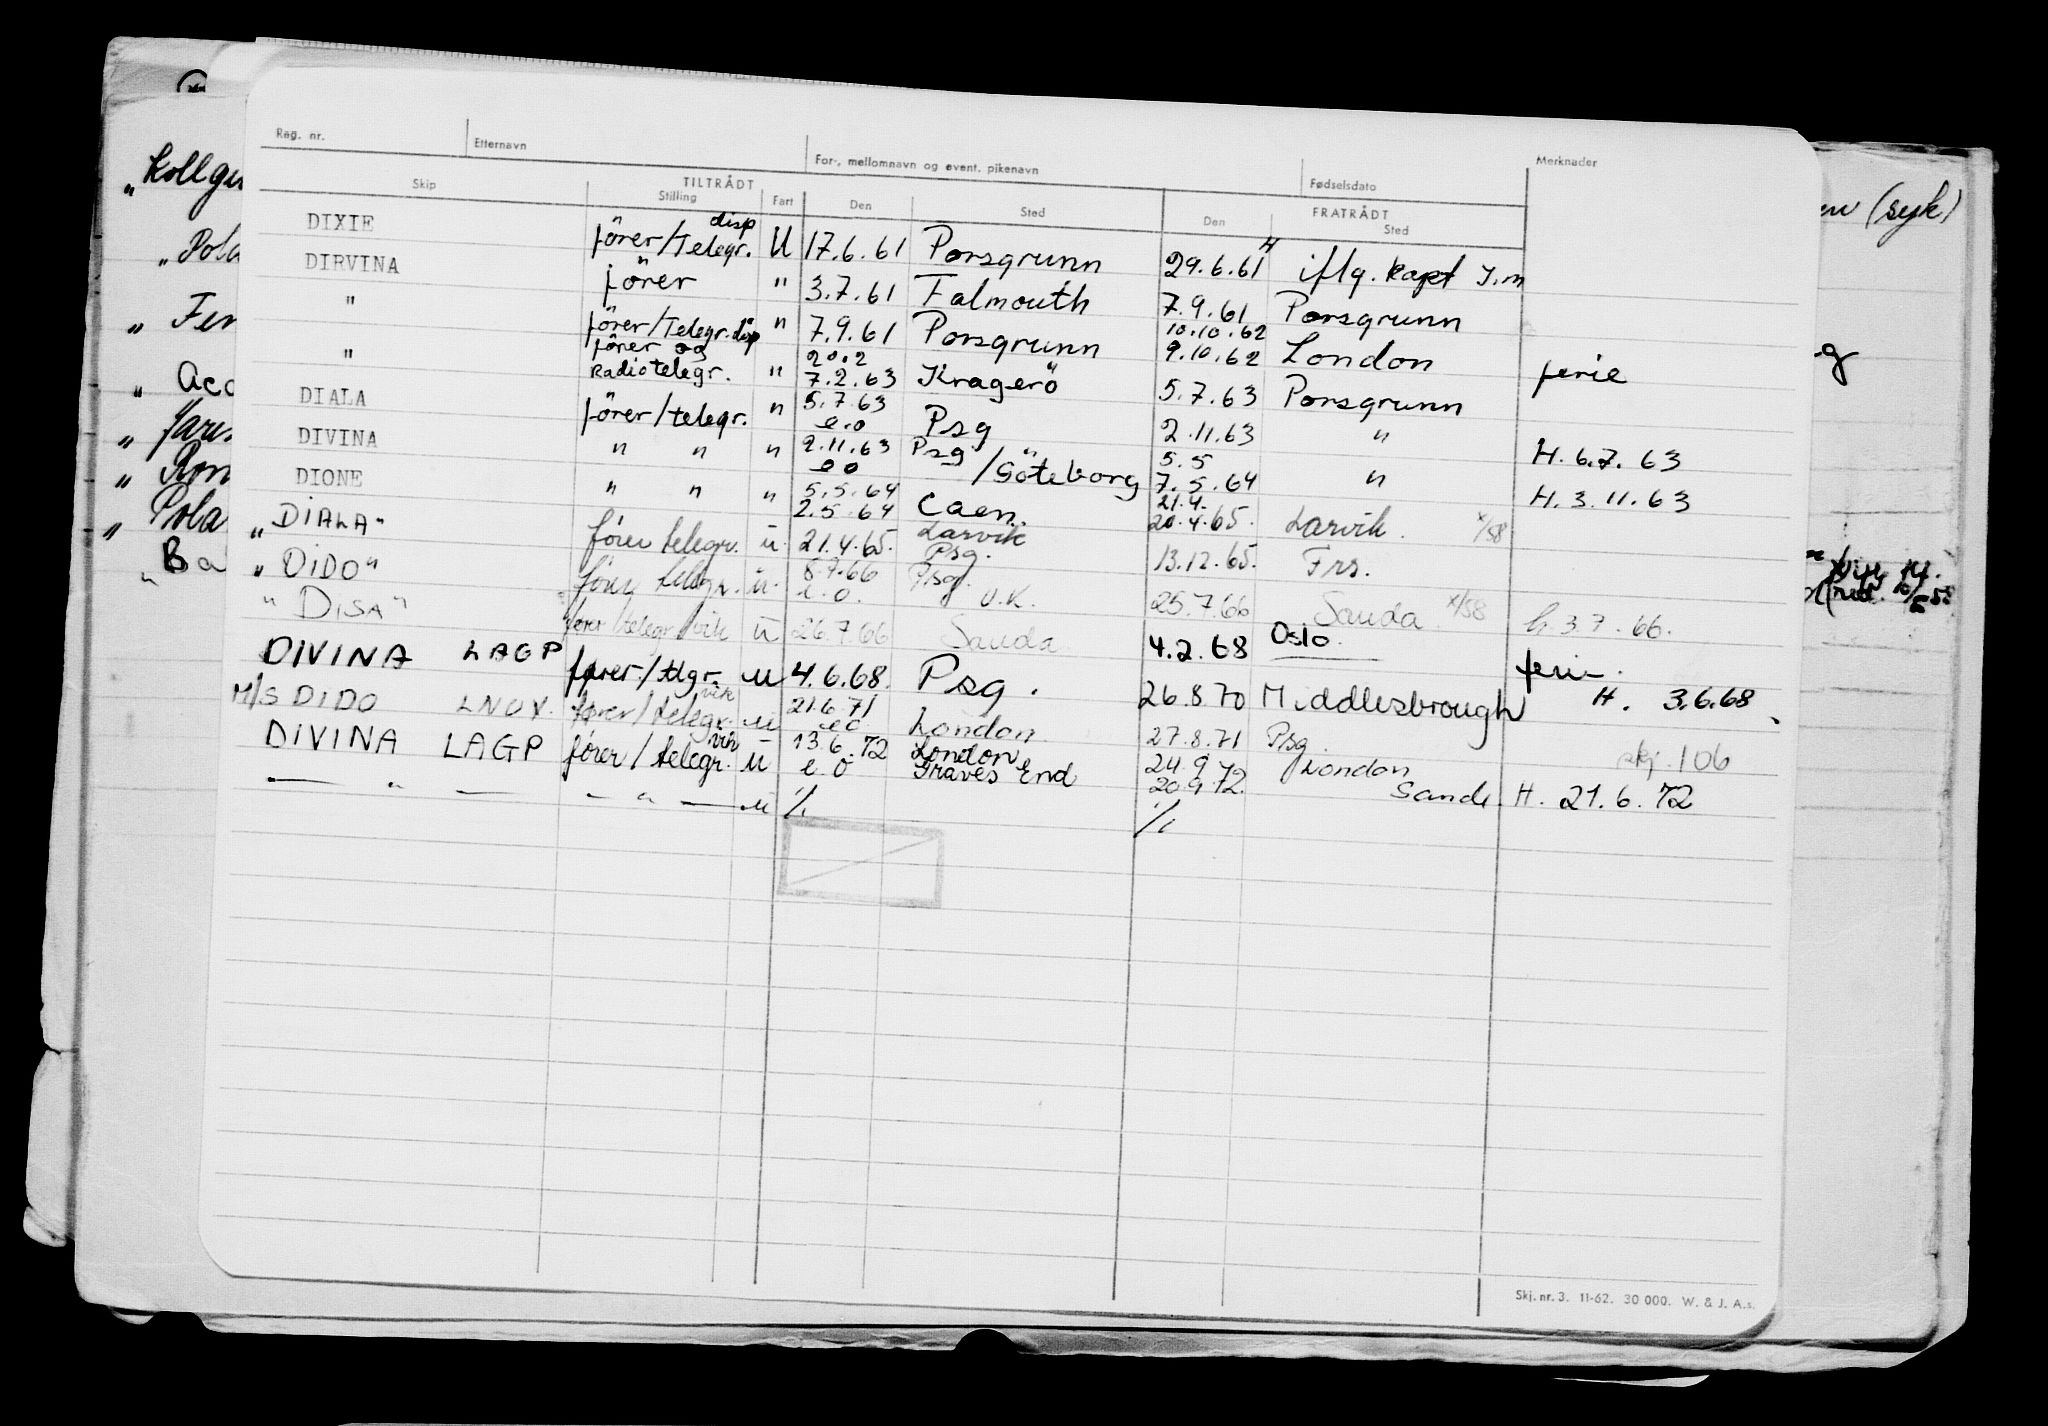 Reg. nr. Etternavn For-, mellomnavn og event. pikenavn Fødselsdato Merknader
Skip TILTRÅDT FRATRÅDT
Stilling Fart Den Sted Den Sted
„Kollgu
„Pola
„ Fer
„ Acc
„ Jaru
„ Ron
„ Pola
„ Ba
(syk)
DIXIE förer/Telegr. disp U 17.6.61 Porsgrunn 29.6.61 H iflg. kapt I.m
DIRVINA förer " 3.7.61 Falmouth 7.9.61 Porsgrunn
" förer/Telegr. disp " 7.9.61 Porsgrunn 10.10.62 9.10.62 London ferie
" förer og Radiotelegr. " 20.2 7.2.63 Kragerö 5.7.63 Porsgrunn
DIALA förer/telegr. " 5.7.63 e.o Psg 2.11.63 " H. 6.7.63
DIVINA " " " 2.11.63 e o Psg/Göteborg 5.5 7.5.64 " H. 3.11.63
DIONE " " " 5.5.64 2.5.64 Caen. 21.4. 20.4.65. Larvik. x/58
„DIALA" förer telegr. u. 21.4.65. Larvik Psg. 13.12.65. Frs.
„DIDO" förer telegr. u. 8.7.66 e.o. Psg. U.K. 25.7.66 Sauda x/58 h. 3.7.66.
"DISA" fører/telegr./vik u 26.7.66 Sauda 4.2.68 Oslo. ferie.
DIVINA LAGP fører/tlgr. u 4.6.68. Psg. 26.8.70 Middlesbrough H. 3.6.68
M/S DIDO LNUX. fører/telegr. vik u 21.6.71 e o London 27.8.71 Psg. skj. 106
DIVINA LAGP fører/telegr. vik u 13.6.72 e.o London Graves End 24.9.72 20.9.72. London Sande H. 21.6.72
— " — — " — u ./. ./.
Skj. nr. 3. 11-62. 30 000. W. & J. A.s.